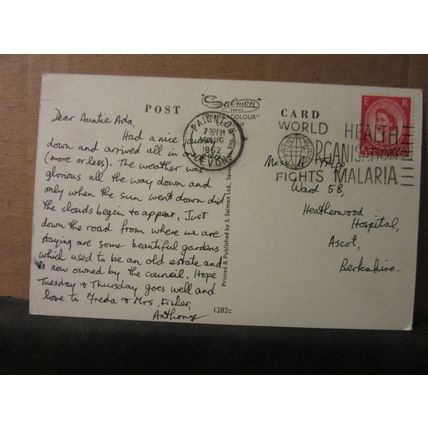 POST
Salmon
SERIES
COLOUR"
CARD
PAIGNTON
7 30PM
1962
DEVON
E R
WORLD HEALTH
ORGANISATION
FIGHTS MALARIA
Dear Auntie Ada,
Had a nice journey
down and arrived all in one
(more or less). The weather was
glorious all the way down and
only when the sun went down did
the clouds begin to appear. Just
down the road from where we are
staying are some beautiful gardens
which used to be an old estate and
is now owned by the council. Hope
Tuesday & Thursday goes well and
love to Freda & Mrs. Fisher.
Anthony
Miss A.
Ward 5B,
Heatherwood
Hospital,
Ascot,
Berkshire.
Printed & Published by J. Salmon Ltd.,
1282c